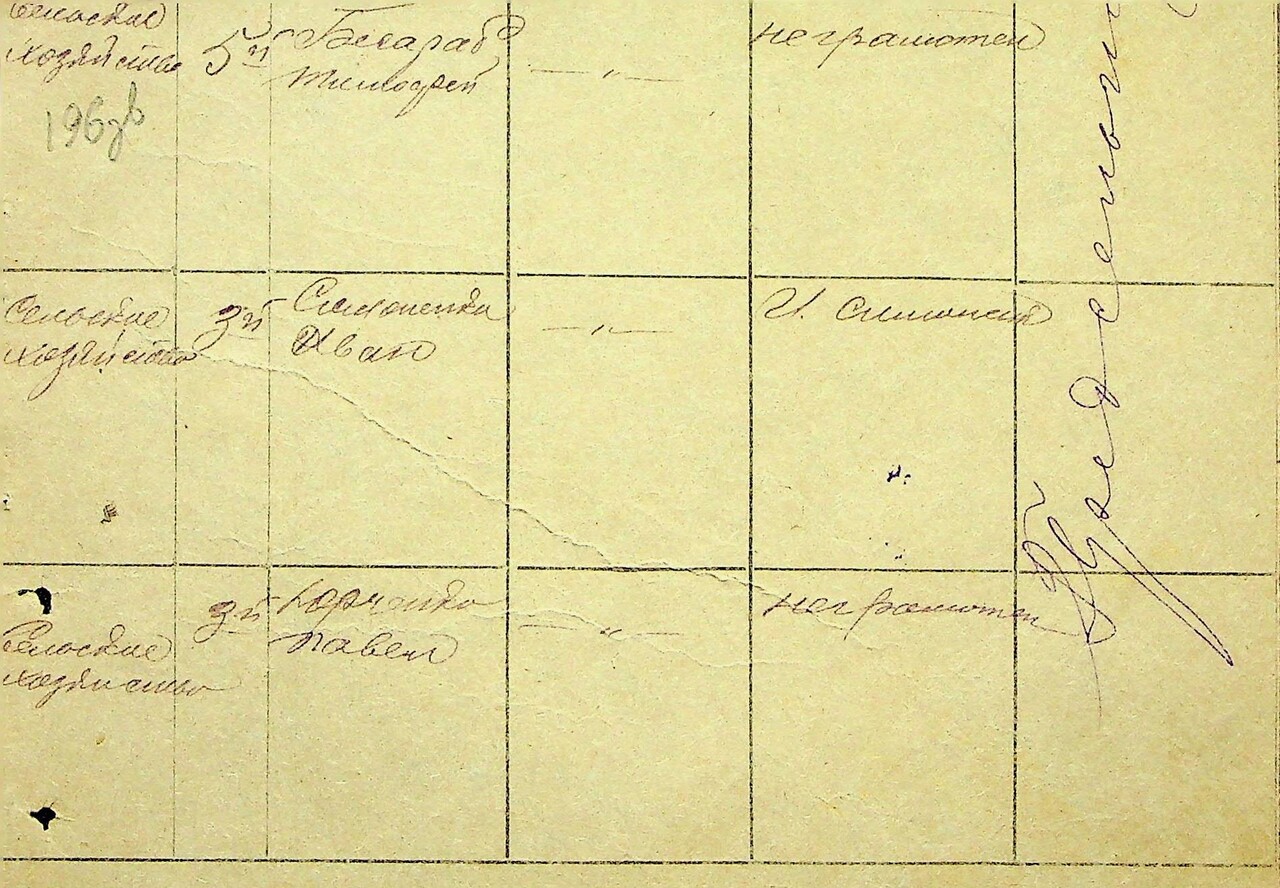 Сельское
хозяйство
5й
Бесараб
Тимофей
— " —
неграмотен
Сельское
хозяйство
3й
Симоненко
Иван
— " —
И. Симоненко
Сельское
хозяйство
3й
Юрченко
Павел
— " —
неграмотен